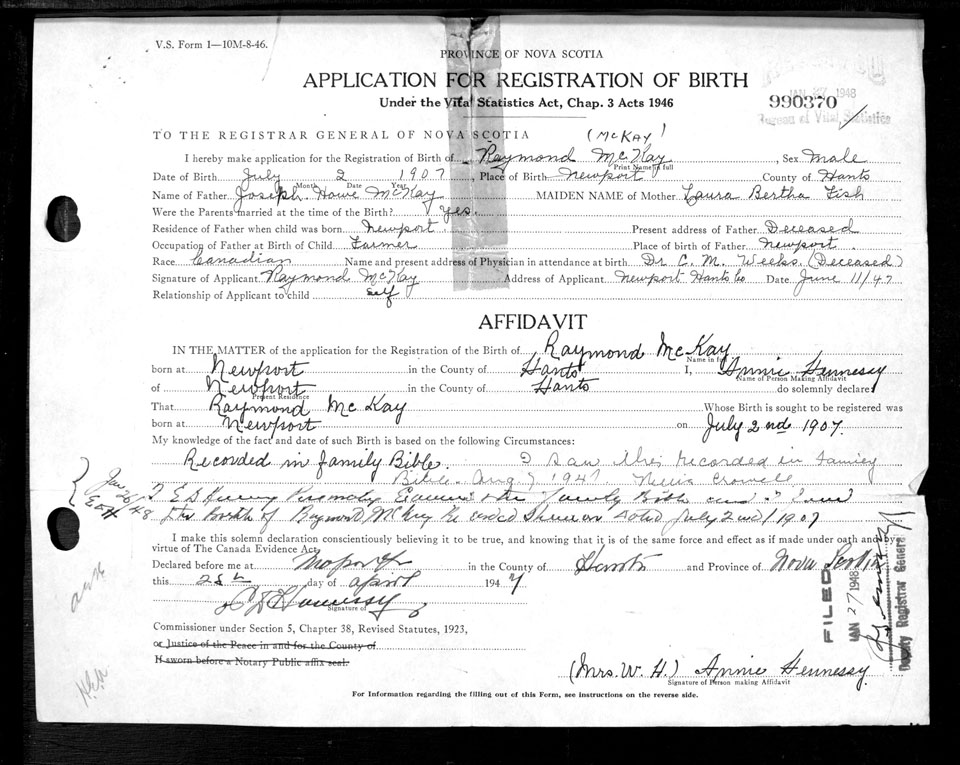 V.S. Form 1—10M-8-46.
PROVINCE OF NOVA SCOTIA
APPLICATION FOR REGISTRATION OF BIRTH
Under the Vital Statistics Act, Chap. 3 Acts 1946
JAN 27 1948
990370
Bureau of Vital Statistics
TO THE REGISTRAR GENERAL OF NOVA SCOTIA
(McKAY)
I hereby make application for the Registration of Birth of Raymond McKay Sex Male
Print Name in full
Date of Birth July 2 1907, Place of Birth Newport County of Hants
Month Date Year
Name of Father Joseph Howe McKay MAIDEN NAME of Mother Laura Bertha Fish
Were the Parents married at the time of the Birth? Yes.
Residence of Father when child was born Newport. Present address of Father Deceased
Occupation of Father at Birth of Child Farmer Place of birth of Father Newport.
Race Canadian Name and present address of Physician in attendance at birth Dr C. M. Weeks. (Deceased)
Signature of Applicant Raymond McKay Address of Applicant Newport Hants Co Date June 11/47
Relationship of Applicant to child self
AFFIDAVIT
IN THE MATTER of the application for the Registration of the Birth of Raymond McKay
Name in full
born at Newport in the County of Hants I, Annie Hennessy
Name of Person Making Affidavit
of Newport in the County of Hants do solemnly declare:
Present Residence
That Raymond McKay Whose Birth is sought to be registered was
born at Newport on July 2nd 1907.
My knowledge of the fact and date of such Birth is based on the following Circumstances:
Recorded in family Bible. I saw this recorded in family
Bible. Aug 7 1947 Crowell
Jan 26/48 I Family Bible and I
the Birth of Raymond McKay Recorded thereon dated July 2nd/1907
I make this solemn declaration conscientiously believing it to be true, and knowing that it is of the same force and effect as if made under oath and by
virtue of The Canada Evidence Act.
Declared before me at in the County of Hants and Province of Nova Scotia
this 25th day of April 1947
Hennessy
Signature of
Commissioner under Section 5, Chapter 38, Revised Statutes, 1923,
or Justice of the Peace in and for the County of
If sworn before a Notary Public affix seal.
FILED
JAN 27 1948
Deputy Registrar General
(Mrs. W. H.) Annie Hennessy.
Signature of Person making Affidavit
For Information regarding the filling out of this Form, see instructions on the reverse side.